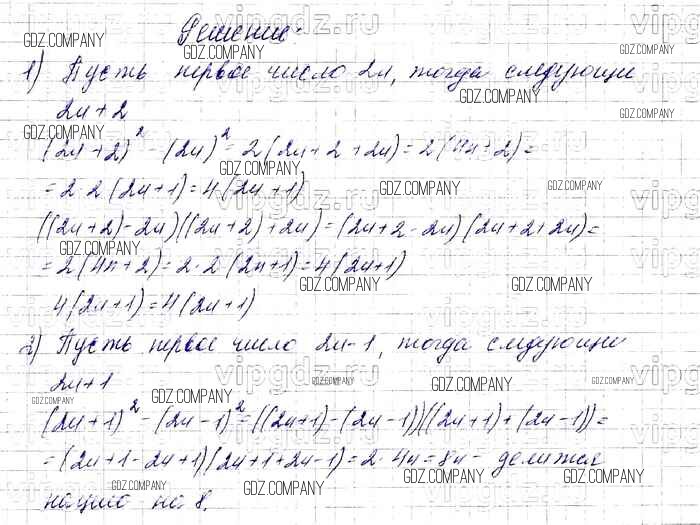 Решение.
1) Пусть первое число 2n, тогда следующие
2n+2
(2n+2)² - (2n)² = 2(2n+2+2n) = 2(4n+2) =
= 2·2(2n+1) = 4(2n+1)
((2n+2)-2n)((2n+2)+2n) = (2n+2-2n)(2n+2+2n) =
= 2(4n+2) = 2·2(2n+1) = 4(2n+1)
4(2n+1) = 4(2n+1)
2) Пусть первое число 2n-1, тогда следующие
2n+1
(2n+1)² - (2n-1)² = ((2n+1)-(2n-1))((2n+1)+(2n-1)) =
= (2n+1-2n+1)(2n+1+2n-1) = 2·4n = 8n - делится
нацело на 8.
vipgdz.ru
GDZ.COMPANY